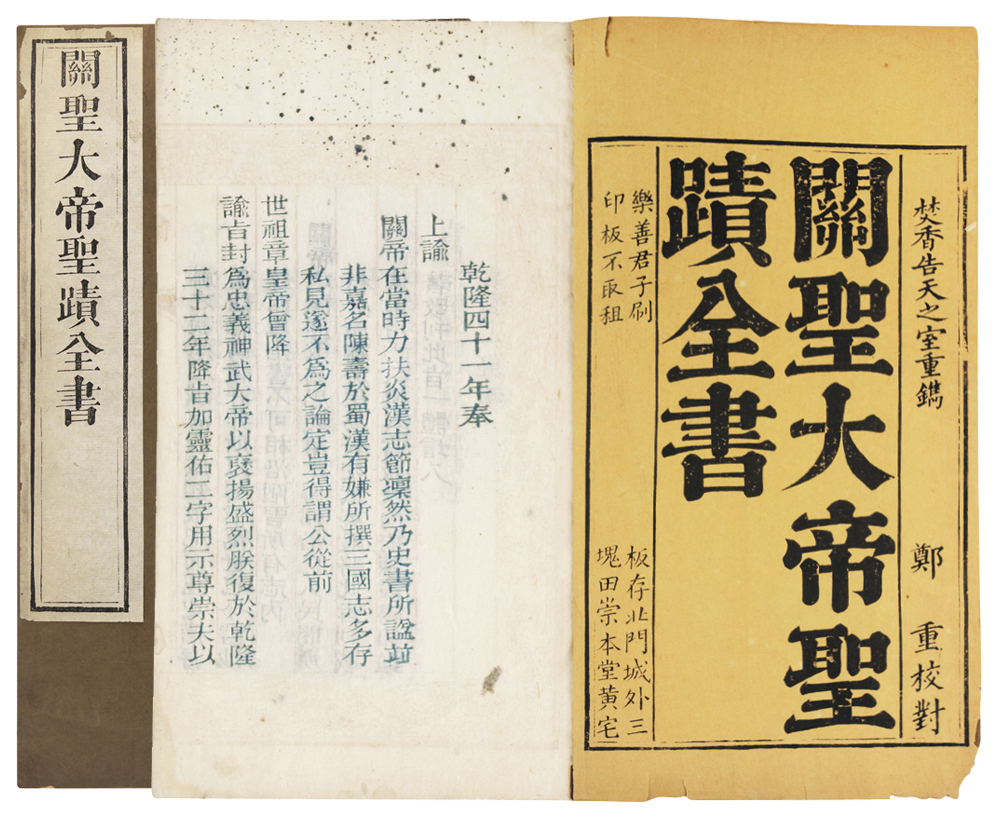 焚香告天之室重鐫
鄭 重校對
關聖大帝聖
蹟全書
樂善君子刷
印板不取租
板存北門城外三
塊田崇本堂黄宅
乾隆四十一年奉
上諭
關帝在當時力扶炎漢志節凜然乃史書所諡並
非嘉名陳壽於蜀漢有嫌所撰三國志多存
私見遂不為之論定豈得謂公從前
世祖章皇帝曾降
諭旨封為忠義神武大帝以褒揚盛烈朕復於乾隆
三十二年降旨加靈佑二字用示尊崇夫以
關聖大帝聖蹟全書